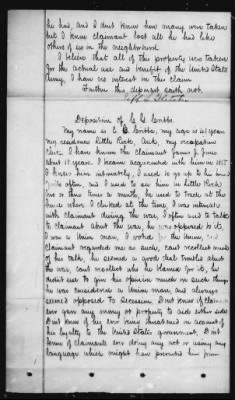 he had, and I dont know how many were taken
but I know claimant lost all he had like
others of us in the neighborhood.
I believe that all of this property was taken
for the actual use and benefit of the United States
Army, I have no interest in this claim
Further this deponent saith not.
Deposition of
My name is my age is years
my residence Little Rock, Ark, my occupation
Clerk. I have known the claimant James J. Jones
about 18 years. I became acquainted with him in 185
I knew him intimately, I used to go up to his
quite often, and I used to see him in Little Rock
two or three times a month, he used to trade at the
house where I clerked at the time I was intimate
with claimant during the war, I often used to talk
to claimant about the war, he was opposed to it,
I was a Union man, I voted for the Union, and
claimant regarded me as such, cant recollect much
of his talk, he seemed a good deal troubled about
the war, cant recollect who he blamed for it, he
didnt use to give his opinion much on such things
he was considered a Union man, and always
seemed opposed to Secession. Dont know of claimant
ever gave any money or property to aid either side
Dont know of his ever being threatened on account of
his loyalty to the United States government. Dont
know of claimants ever doing any act or using any
language which might have prevented him from